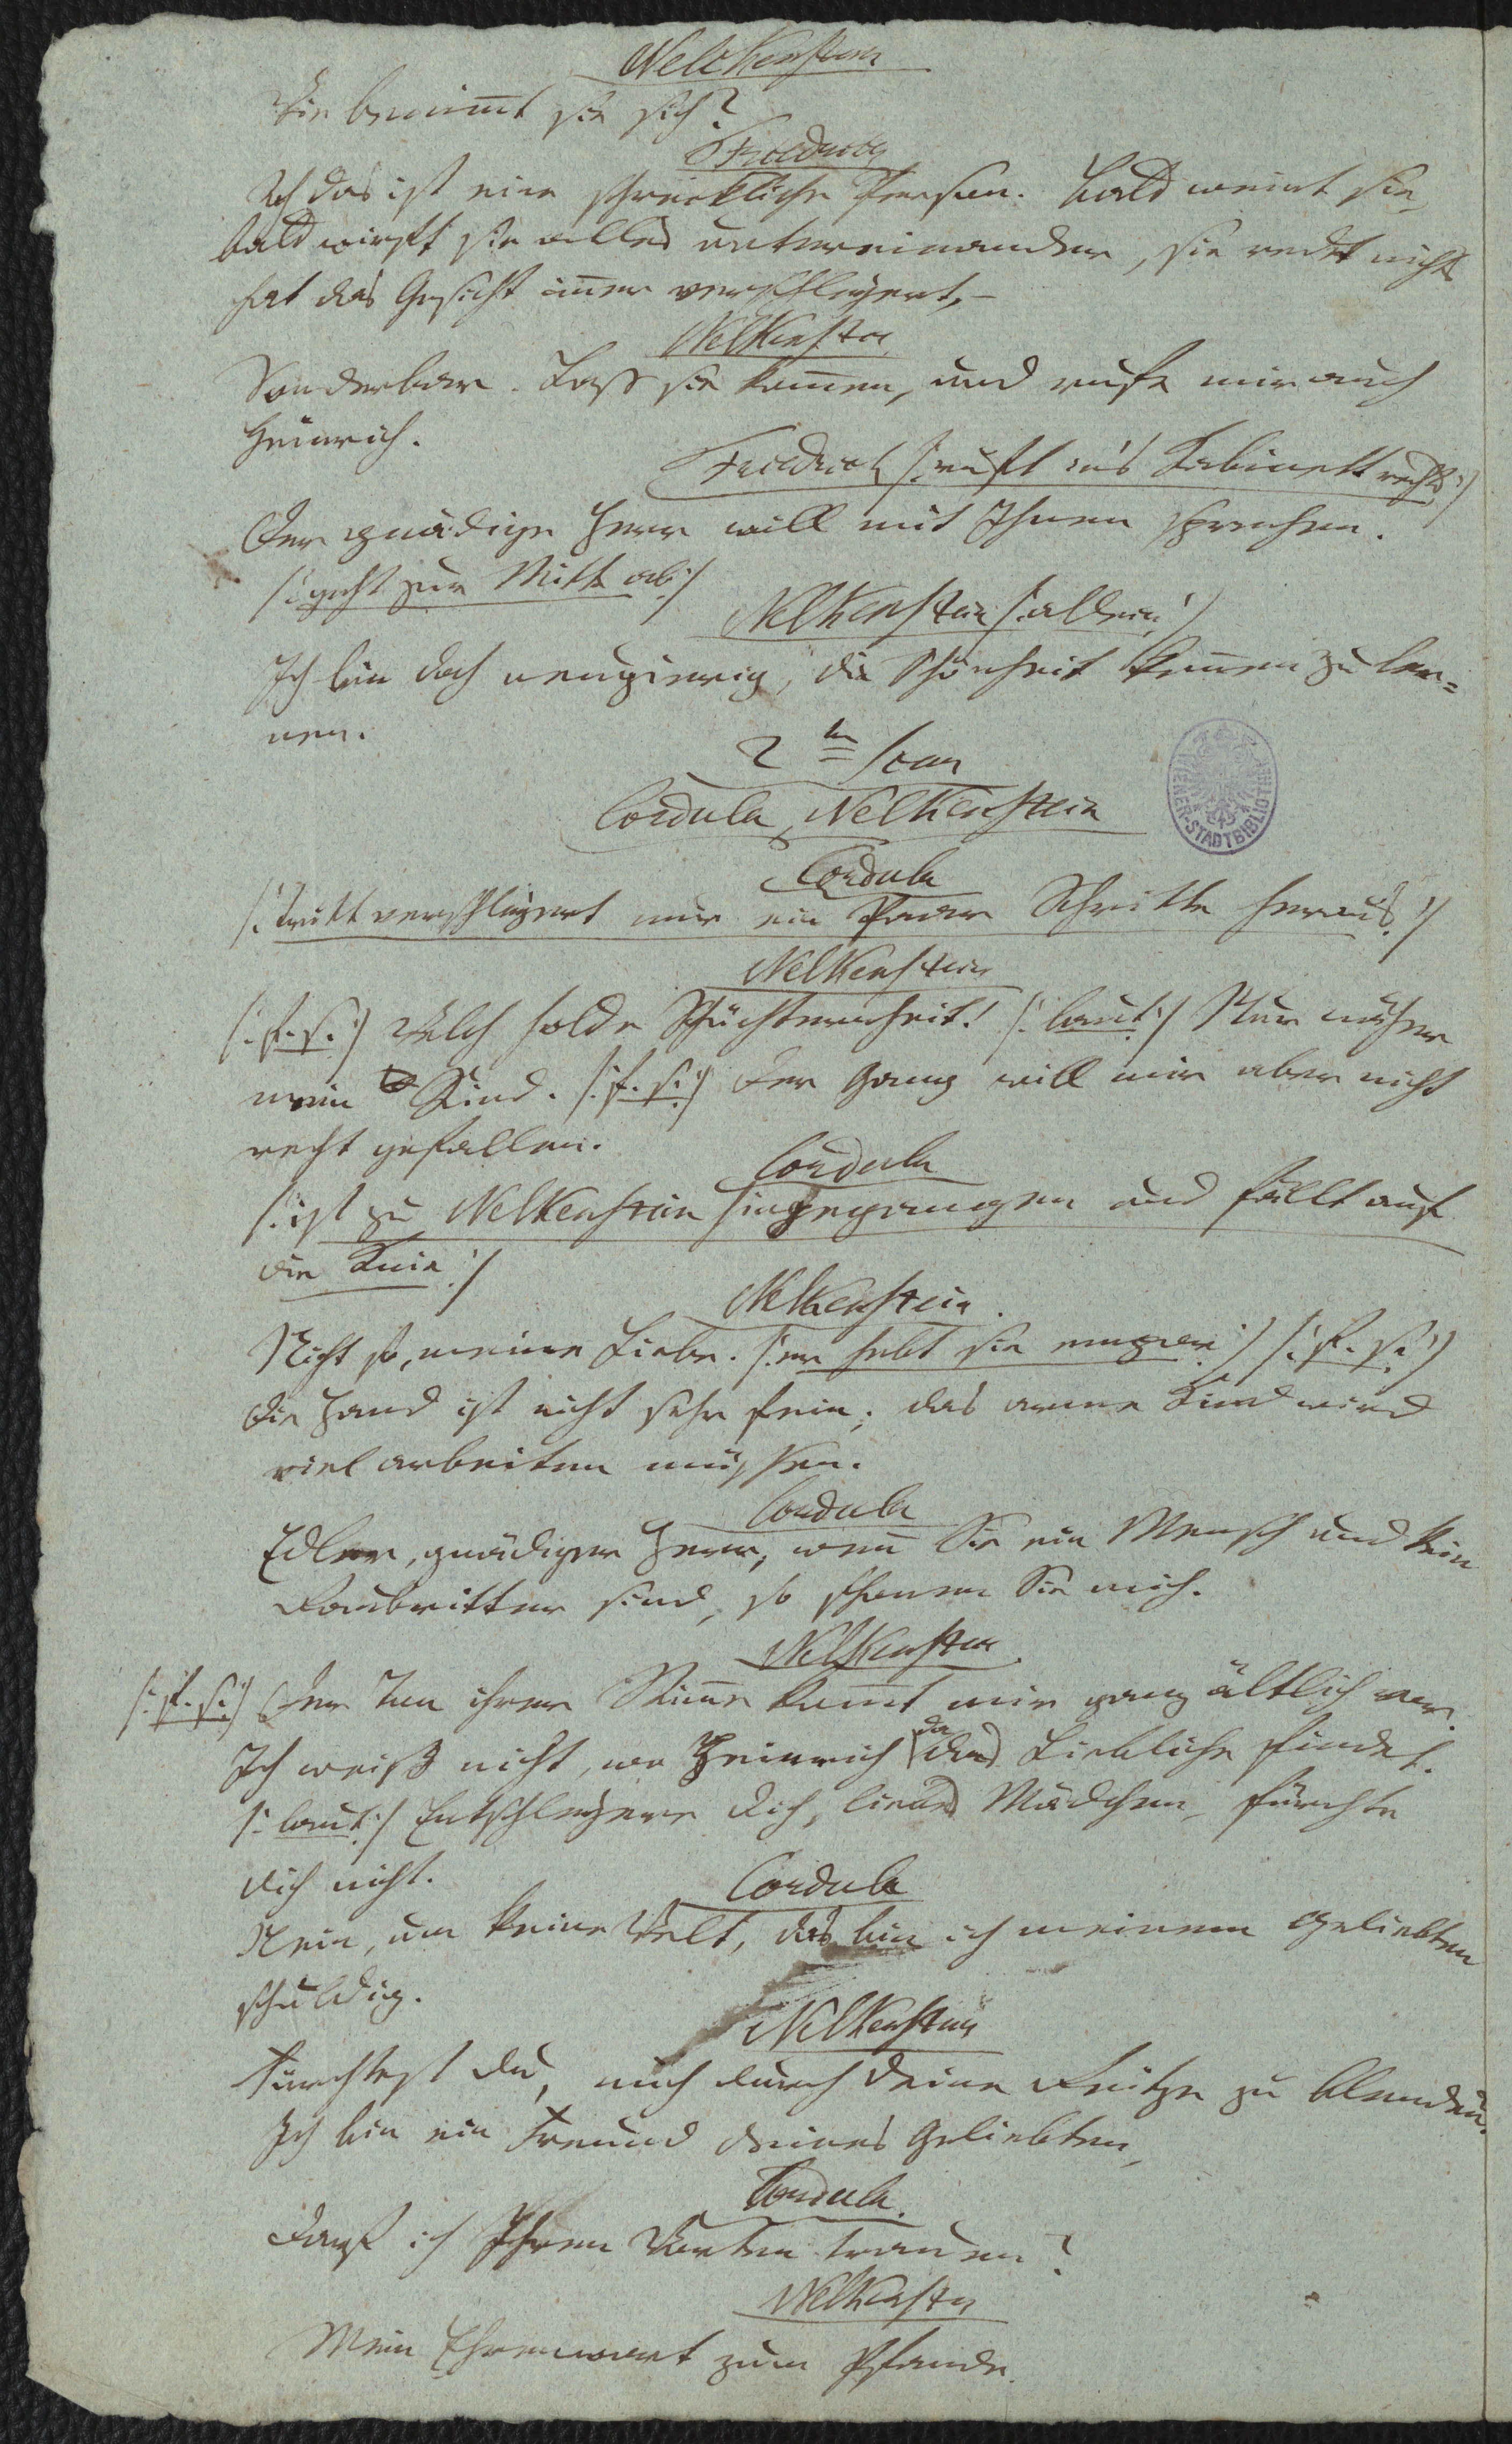 Nelkenstein
Wie benim̅t sie sich?
Friedrich
Ach das ist eine schreckliche Person. Bald weint sie,
bald wirft sie alles untereinander, sie redet nicht
hat das Gesicht im̅er verschleyert, –
Nelkenstein
Sonderbar. Lass sie kom̅en, und rufe mir auch
Heinrich.
Friedrich /: ruft in's Kabinett rechts :/
Der gnädige Herr will mit Ihnen sprechen.
/: geht zur Mitte ab :/
Nelkenstein /: allein :/
Ich bin doch neugierig, die Schönheit kennen zu ler=
nen.
2te Scene
Cordula, Nelkenstein
Cordula
/: tritt verschleyert nur ein Paar Schritte heraus :/
Nelkenstein
/: f. s. :/ Welch holde Schüchternheit! /: laut :/ Nur näher
mein Kind. /: f. s. :/ Der Gang will mir aber nicht
recht gefallen.
Cordula
/: ist zu Nelkenstein hingegangen und fällt auf
die Knie :/
Nelkenstein.
Nicht so, meine Liebe. /: er hebt sie empor :/ /: f. s. :/
Die Hand ist nicht sehr fein; das arme Kind wird
viel arbeiten müssen.
Cordula
Edler, gnädiger Herr, wen̅ Sie ein Mensch und kein
Raubritter sind, so schonen Sie mich.
Nelkenstein
/: f. s. :/ Der Ton ihrer Stim̅e kom̅t mir ganz ältlich vor.
Ich weiß nicht, wo Heinrich da das Liebliche findet.
/: laut :/ Entschleyere dich, liebes Mädchen, fürchte
dich nicht.
Cordula
Nein, um keine Welt, das bin ich meinem Geliebten
schuldig.
Nelkenstein
Fürchtest du, mich durch deine Reitze zu blenden?
Ich bin ein Freund deines Geliebten,
Cordula.
Darf ich Ihren Worten trauen?
Nelkenstein
Mein Ehrenwort zum Pfande.
WIENER-STADTBIBLIOTHEK